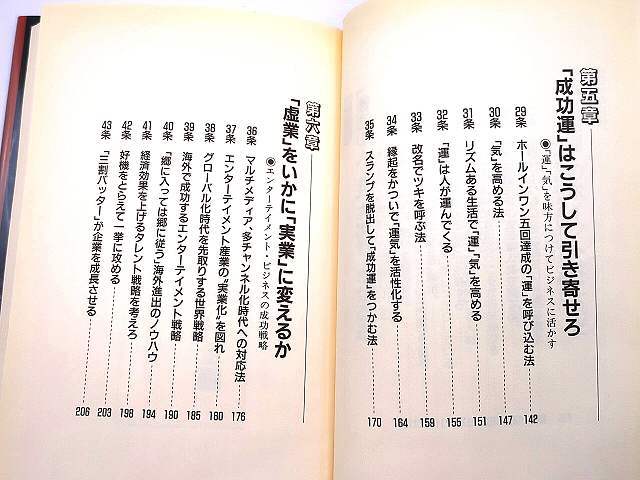 第五章
「成功運」はこうして引き寄せろ
◉「運」「気」を味方につけてビジネスに活かす
29条 ホールインワン五回達成の「運」を呼び込む法 142
30条 「気」を高める法 147
31条 リズムある生活で「運」「気」を高める 151
32条 「運」は人が運んでくる 155
33条 改名でツキを呼ぶ法 159
34条 縁起をかついで「運気」を活性化する 164
35条 スランプを脱出して「成功運」をつかむ法 170
第六章
「虚業」をいかに「実業」に変えるか
◉エンターテイメント・ビジネスの成功戦略
36条 マルチメディア、多チャンネル化時代への対応法 176
37条 エンターテイメント産業の“実業化”を図れ 180
38条 グローバル化時代を先取りする世界戦略 185
39条 海外で成功するエンターテイメント戦略 190
40条 「郷に入っては郷に従う」海外進出のノウハウ 194
41条 経済効果を上げるタレント戦略を考えろ 198
42条 好機をとらえて一挙に攻める 203
43条 「三割バッター」が企業を成長させる 206